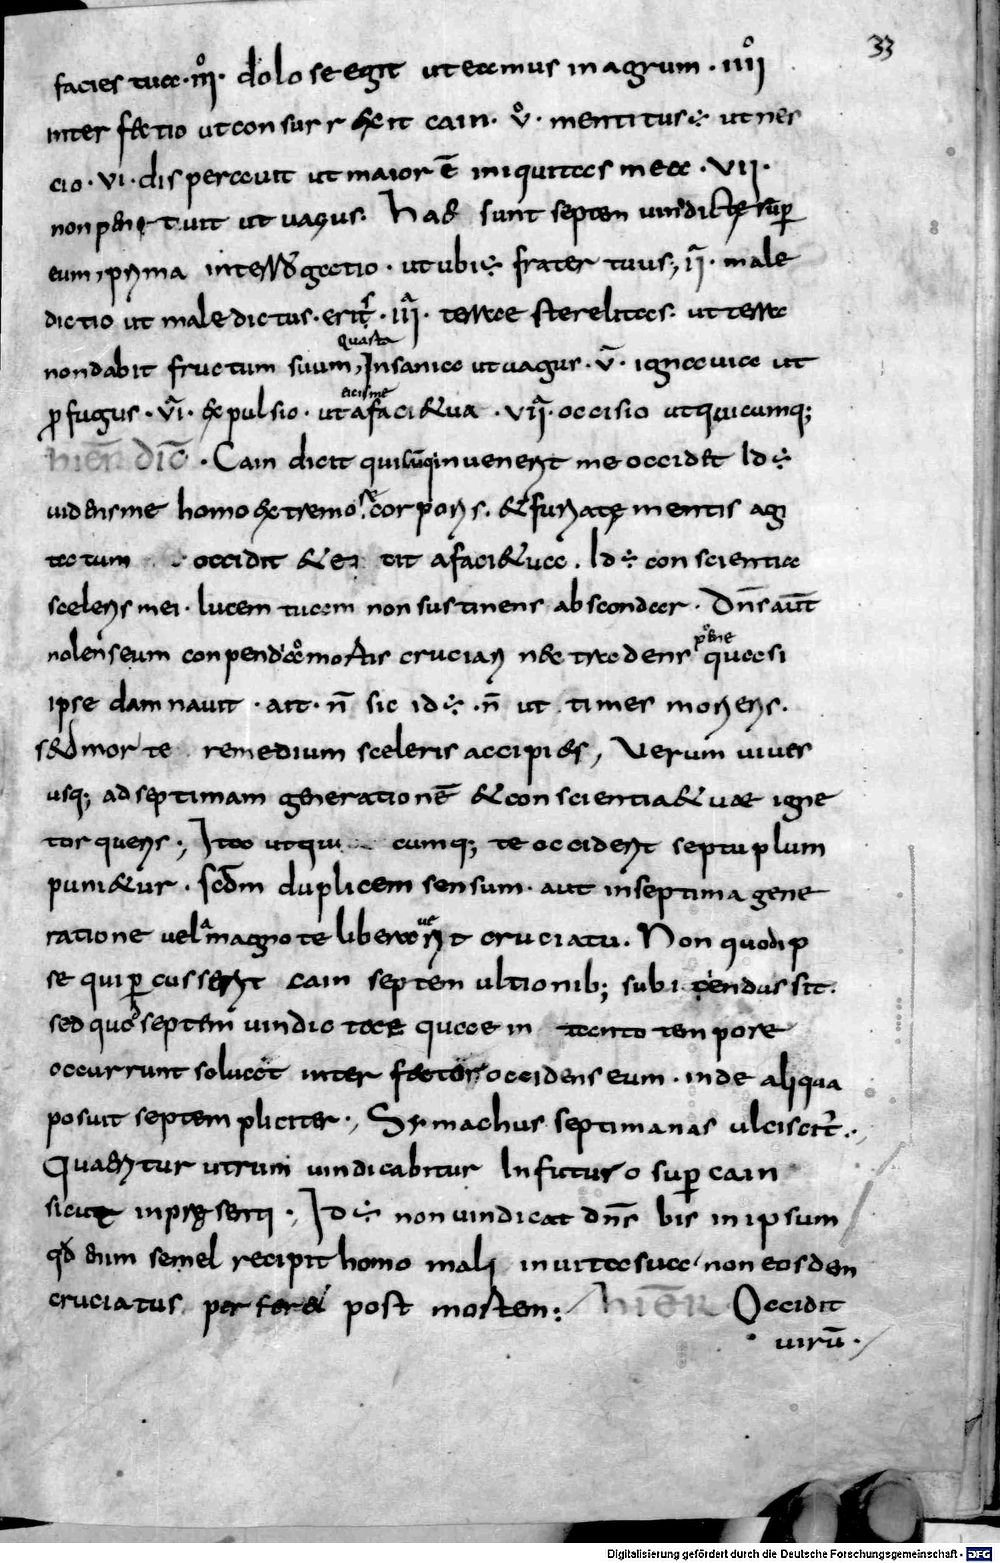 33
facies tua · iii͏̊ · dolose egit ut eamus in agrum · iiii͏̊
interfectio ut consurrexit cain · v͏̊ · mentitus ÷ ut nes
cio · vi · disperauit ut maior ē iniquitas mea · VII ·
non penituit ut uagus. Haec sunt septem uindictę sup̄
eum, prima interrogatio · ut ubi ÷ frater tuus; ii͏ͣ · male
dictio ut maledictus · erit̉s · iii͏ͣ · terrae sterelitas · ut terra
non dabit fructum suum, quarta Insania ut uagus · v͏ͣ · ignauia ut
ꝓfugus · vi͏ͣ · expulsio · ut eicis me a faci&ua · VII͏ͣ · occisio ut quicumq;
hien̄ dic̄ · Cain dicit quicumq; inuenerit me occidet Id ÷
uidens me homo extremo se corporis · & furiatę mentis ag
tatum occidit & a faci&ua . Id ÷ conscientia
sceleris mei · lucem tuam non sustinens abscondar · Dn̄s aut̄
nolens eum conpendio mortis cruciari nec tradens poene qua si
ipse damnauit · ait · n̄ sic id ÷ · n̄ ut times morieris ·
s&d morte remedium sceleris accipies, Verum uiues
usq; ad septimam generationē & conscientia&uae igne
torqueris ·, Ita ut qui cumq; te occiderit septuplum
puni&ur · scd̄m duplicem sensum · aut in septima gene
ratione uel a magno te liberauerit cruciatu. Non quod ip
se qui ꝑcusserit cain septem ultionib; subiciendus sit ·
sed quod septem uindictae quae in tanto tempore
occurrunt soluat interfector occidens eum · inde aliqua
posuit septempliciter ·, Symachus septimanas ulciscit̉ ·,
Quaeritur utrum uindicabitur In futuro sup̄ cain
sicut in pręsenti ·, Id ÷ non uindicat dn̄s bis in ipsum
qd̄ enim semel recipit homo mali in uita sua non eosdem
cruciatus perferet post mortem: hieR̄ Occidit
uirū ·
Digitalisierung gefördert durch die Deutsche Forschungsgemeinschaft · DFG